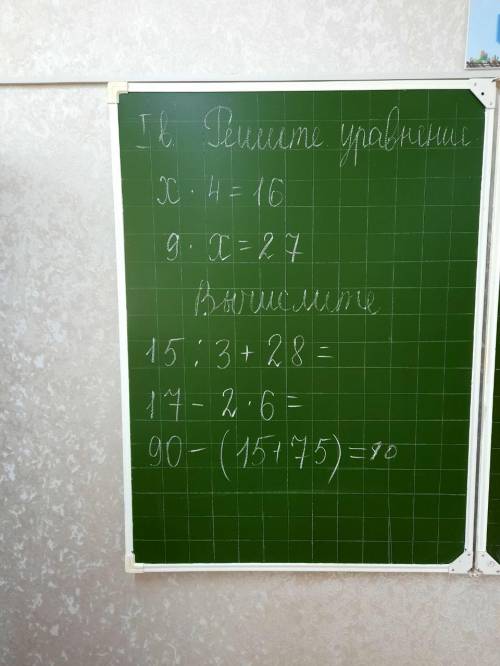 I в. Решите уравнение
x · 4 = 16
9 · x = 27
Вычислите
15 : 3 + 28 =
17 - 2 · 6 =
90 - (15 + 75) =